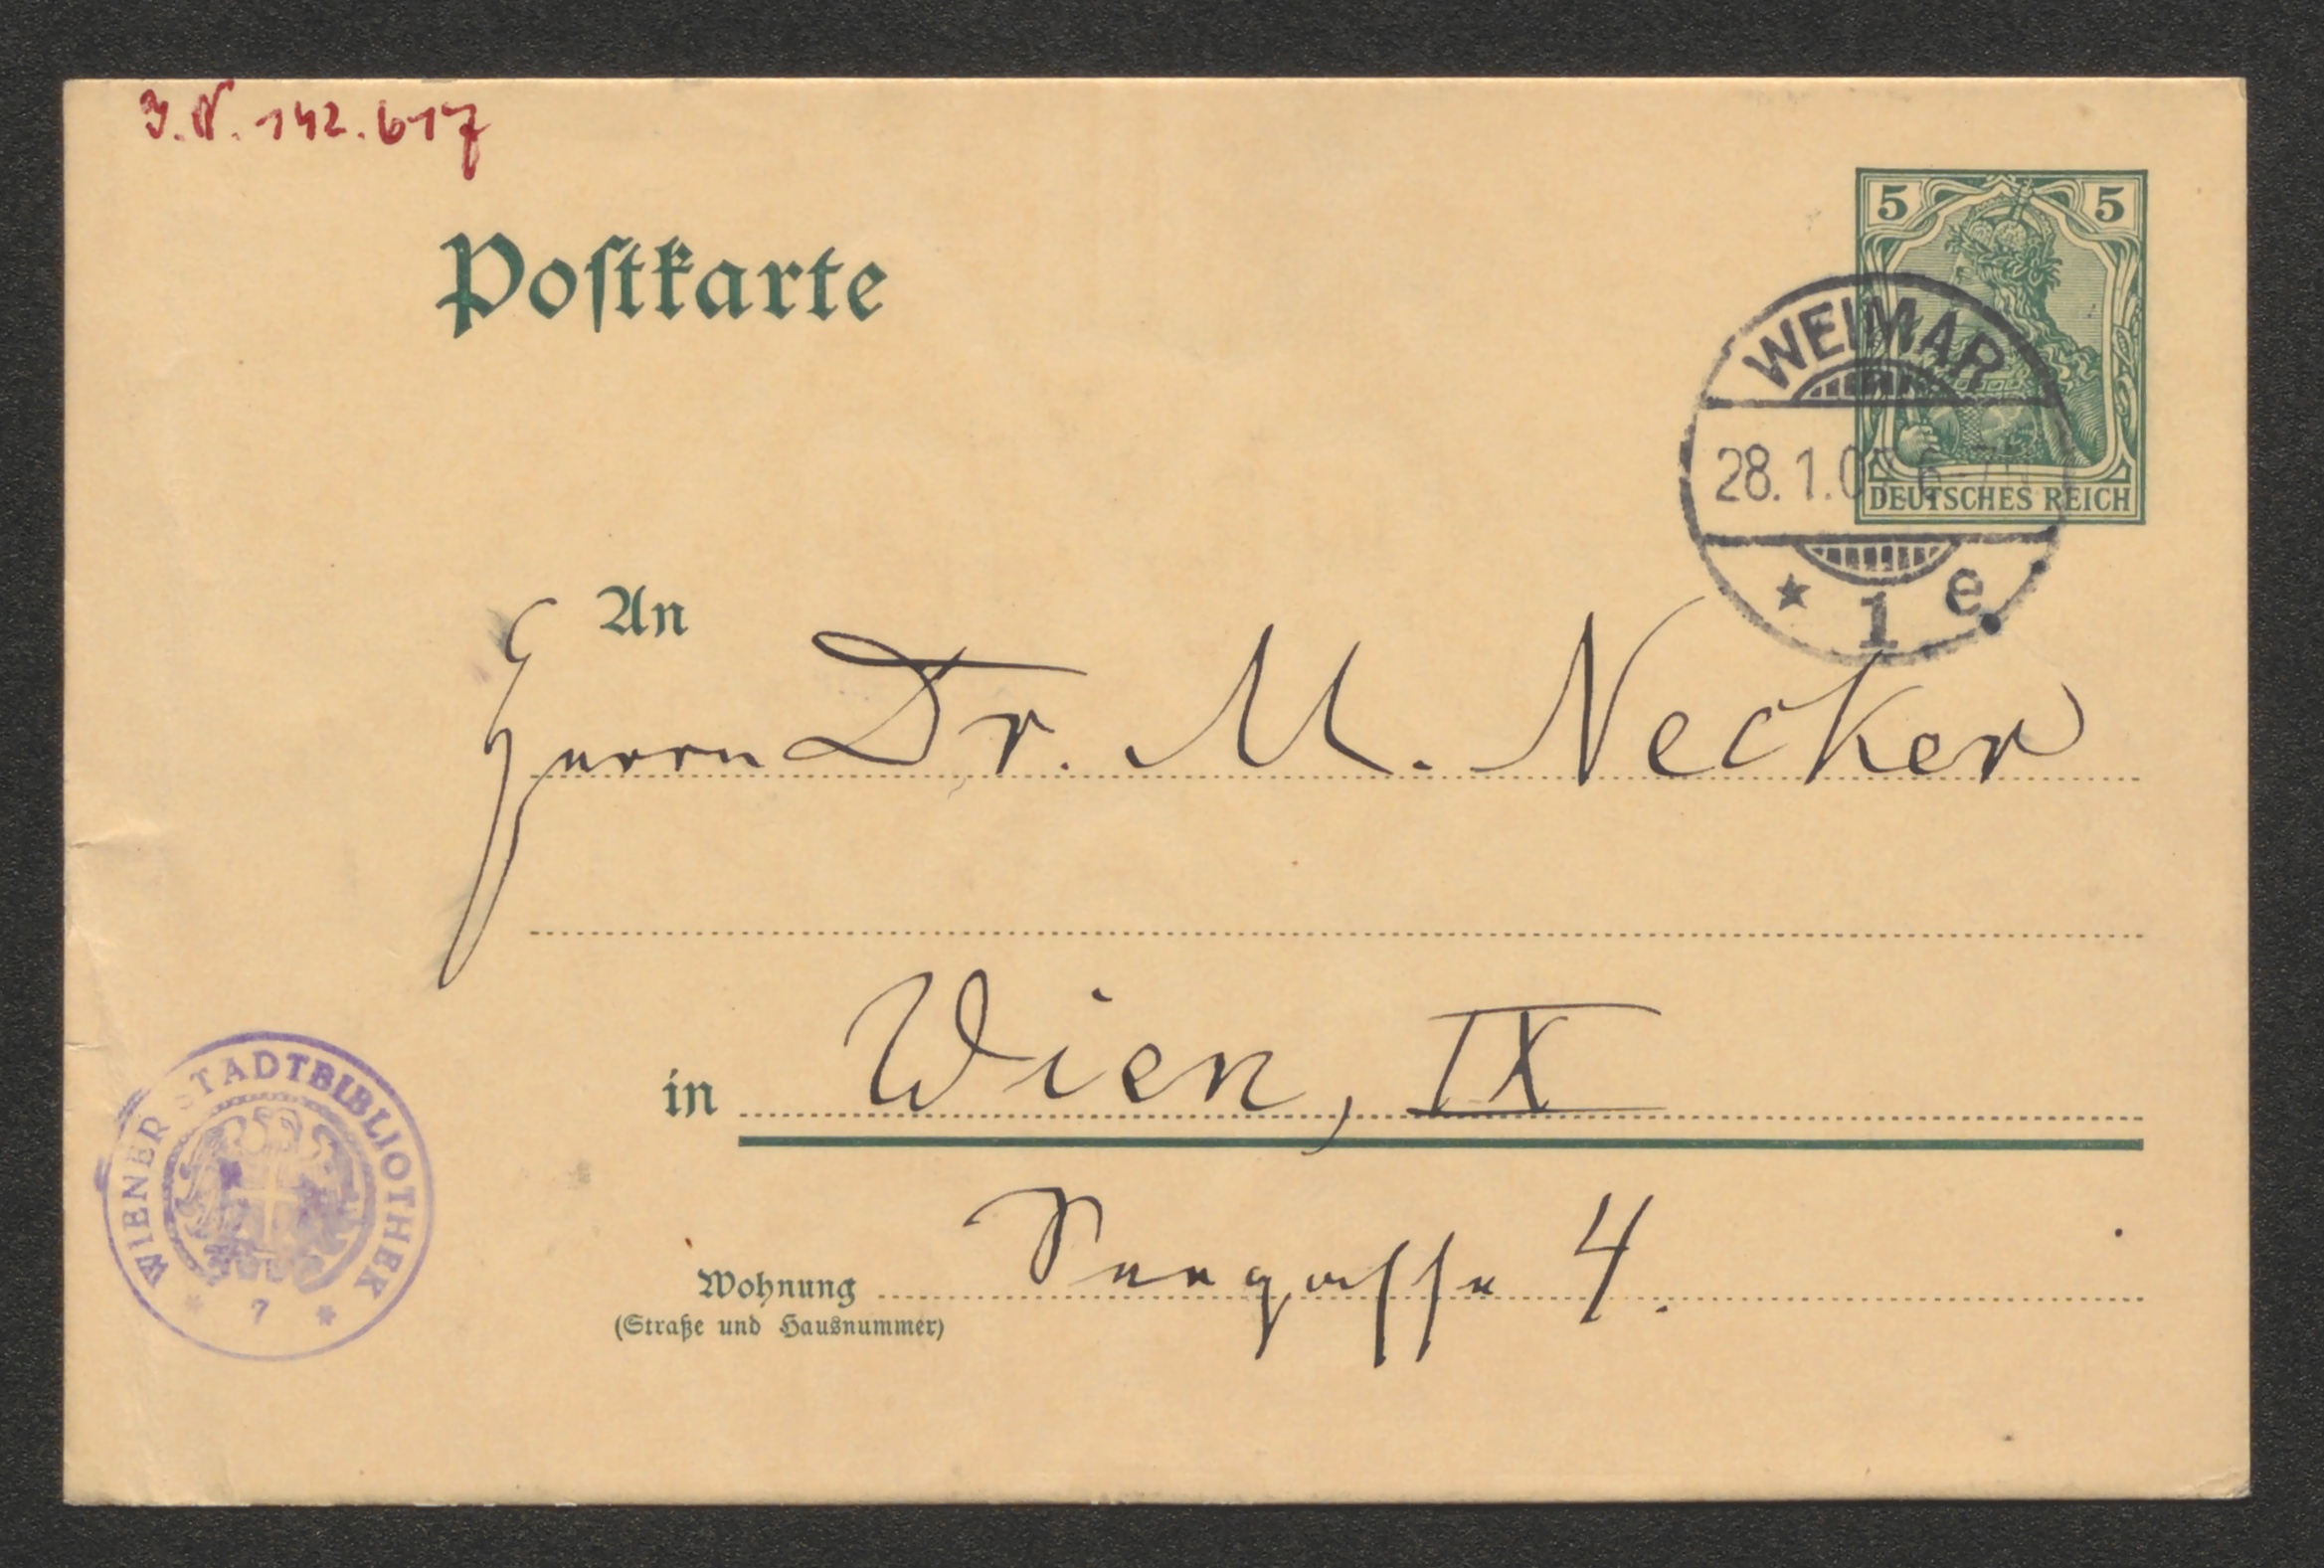 J.N. 142.617
Postkarte
5 5
DEUTSCHES REICH
WEIMAR
28.1.0
* 1 e
An
Herrn Dr. M. Necker
in Wien, IX
Seegasse 4.
Wohnung
(Straße und Hausnummer)
WIENER STADTBIBLIOTHEK
* 7 *